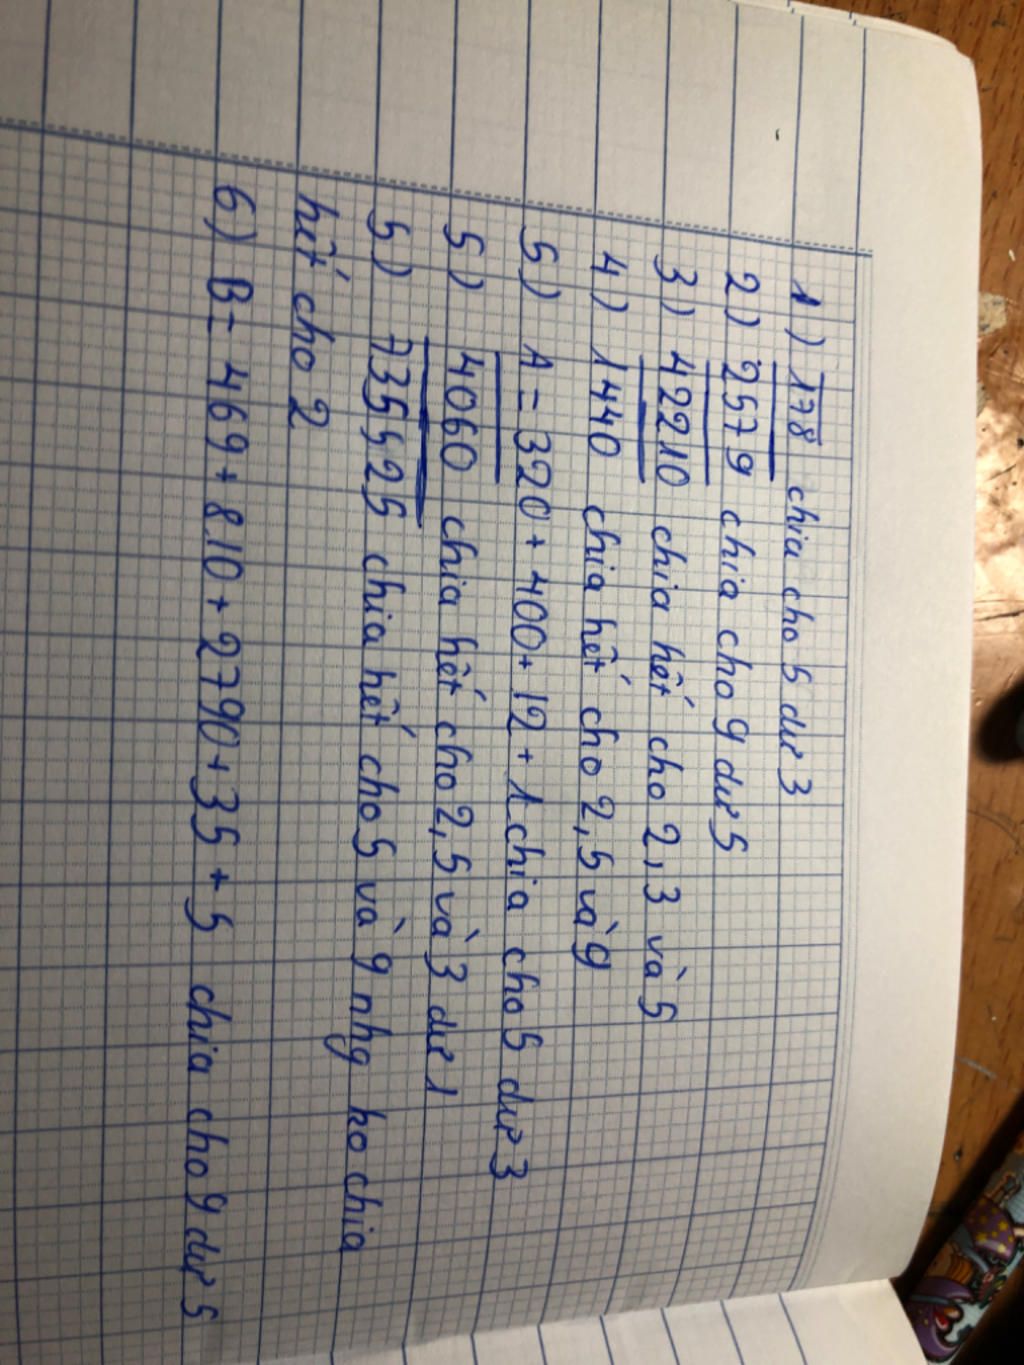 1) 178 chia cho 5 dư 3
2) 2579 chia cho 9 dư 5
3) 42210 chia hết cho 2,3 và 5
4) 1440 chia hết cho 2,5 và 9
5) A = 320 + 400 + 12 + 1 chia cho 5 dư 3
5) 4060 chia hết cho 2,5 và 3 dư 1
5) 735525 chia hết cho 5 và 9 nhg ko chia
hết cho 2
6) B = 469 + 810 + 2790 + 35 + 5 chia cho 9 dư 5